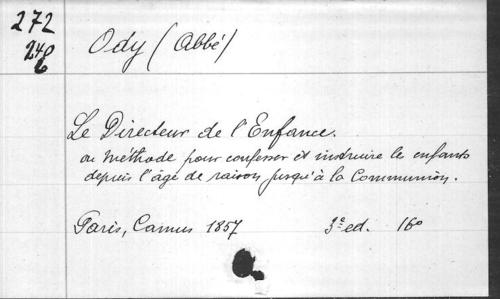 272
240
6
Ody (Abbé)
Le Directeur de l'Enfance.
ou Méthode pour confesser et instruire le enfants
depuis l'âge de raison jusqu'à la Communion.
Paris, Camus 1857 3e ed. 16o